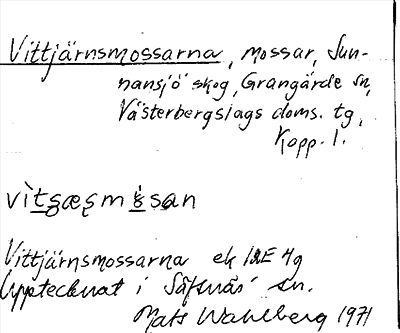 Vittjärnsmossarna, mossar, Sun-
nansjö skog, Grangärde sn,
Västerbergslags doms. tg,
Kopp. l.
Vittjärnsmossarna ek 12E 4g
Upptecknat i Säfsnäs sn.
Mats Wahlberg 1971